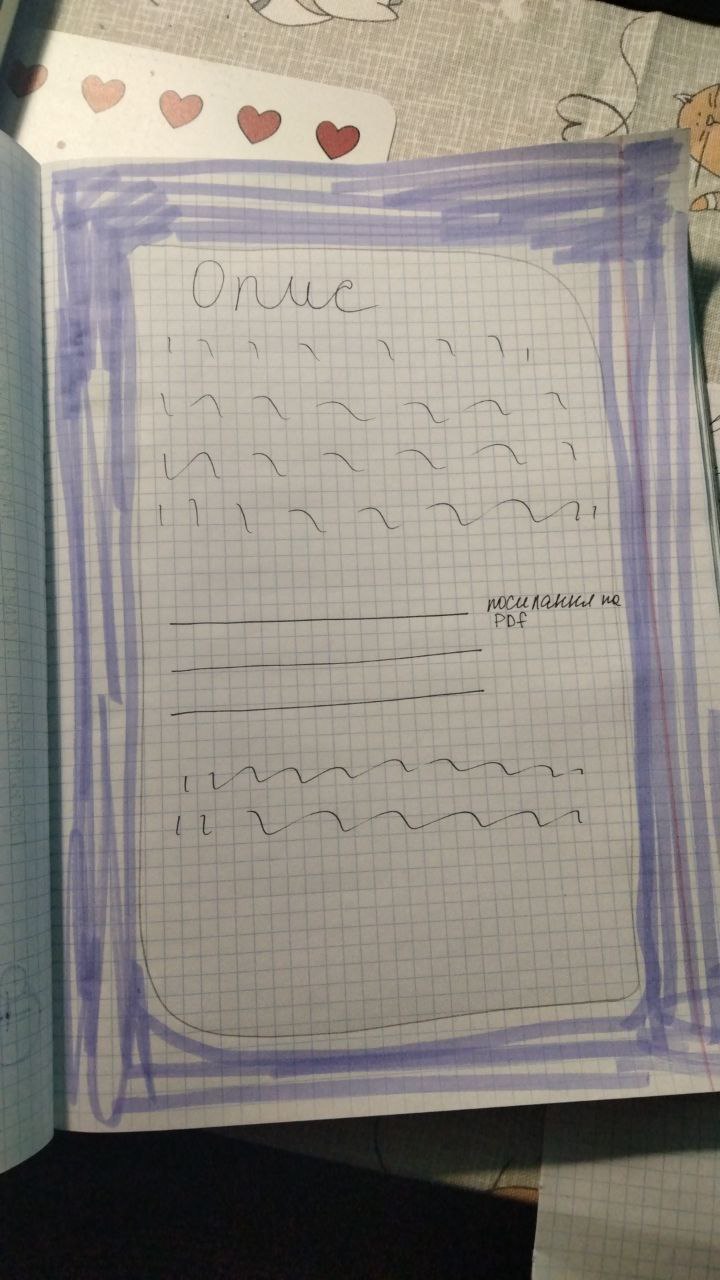 Опис
посилання на
PDF